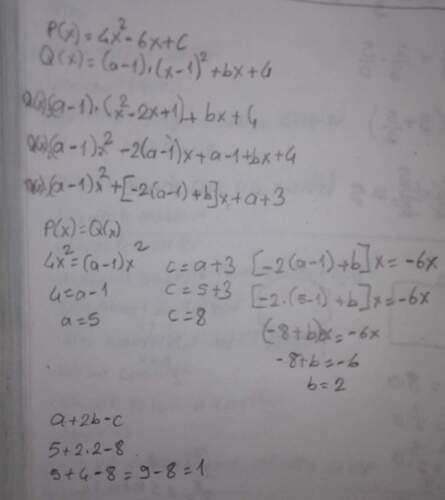 P(x)=4x²-6x+c
Q(x)=(a-1)·(x-1)²+bx+4
Q(x)=(a-1)·(x²-2x+1)+bx+4
Q(x)=(a-1)x²-2(a-1)x+a-1+bx+4
Q(x)=(a-1)x²+[-2(a-1)+b]x+a+3
P(x)=Q(x)
4x²=(a-1)x²
4=a-1
a=5
c=a+3
c=5+3
c=8
[-2(a-1)+b]x=-6x
[-2·(5-1)+b]x=-6x
(-8+b)x=-6x
-8+b=-6
b=2
a+2b-c
5+2·2-8
5+4-8=9-8=1